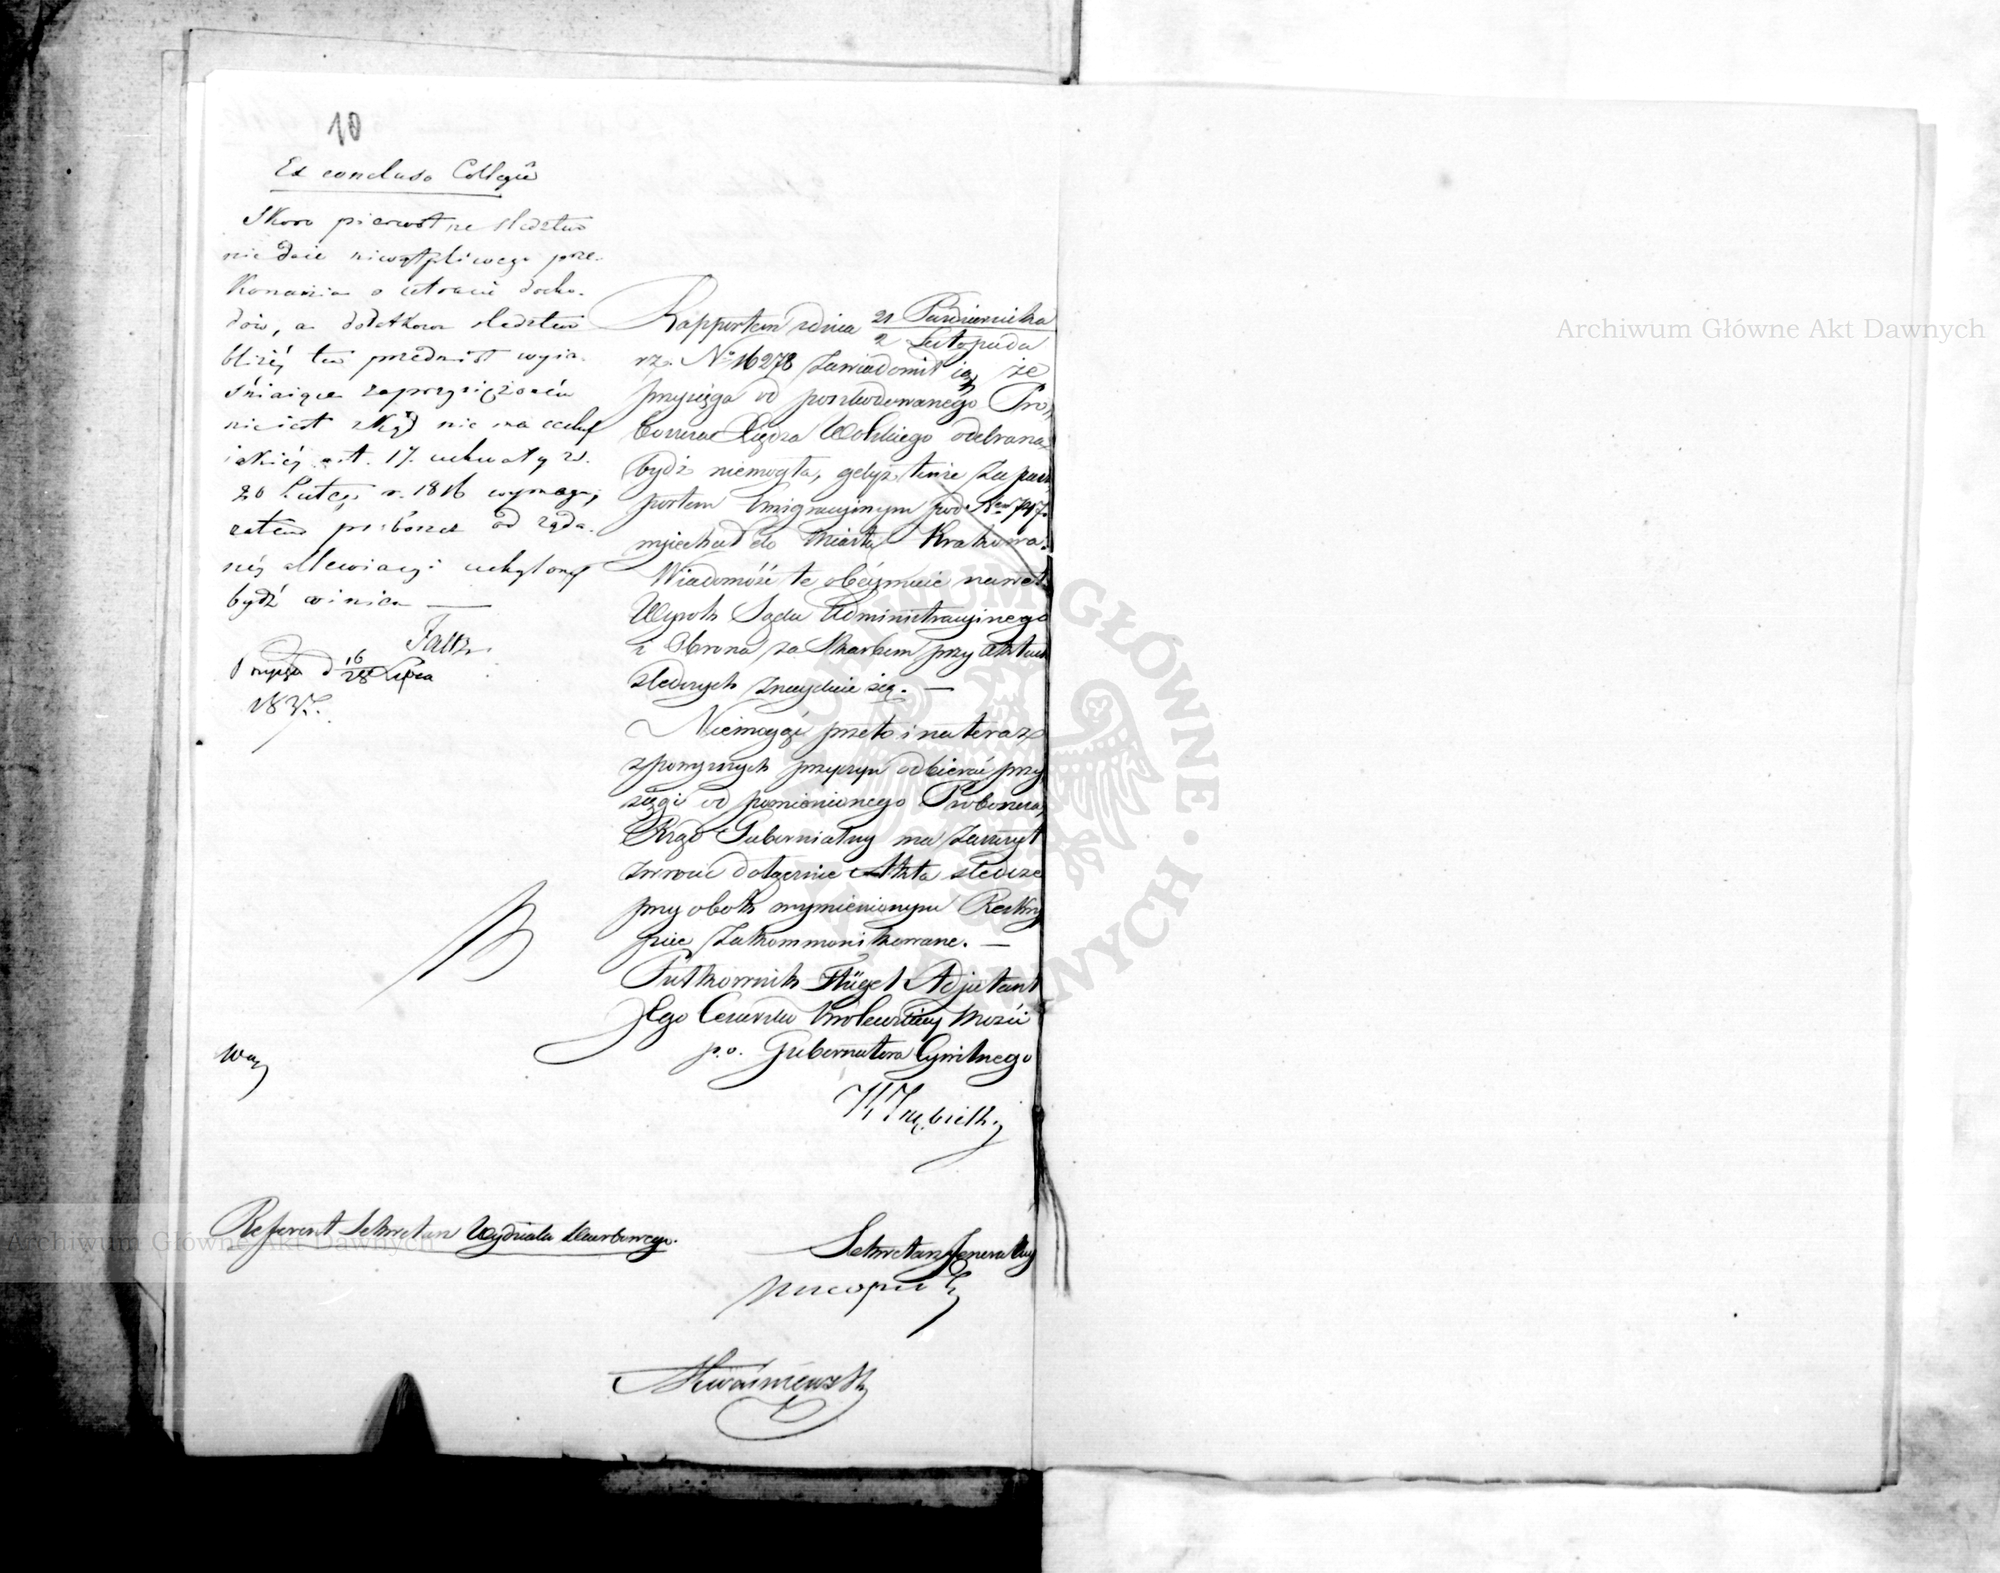 10
Ex concluso Collegii
Skoro pierwotne sledztwo
niedaie niewątpliwego prze-
konania o utracie docho-
dów, a dodatkowe sledztwo
bliżéj ten przedmiot wyia-
śniaiące zaprzysiężonem
nieiest zkąd nie ma cechy
iakiéj art. 17. uchwały z d.
20 Lutego r. 1816 wymaga;
zatem proboszcz od żąda-
néj allewiacyi uchylony
bydź winien —
Falk
Przysięga d 16/28 Lipca
1837.
Rapportem zdnia 21 Pazdziernika
2 Listopada
rz. No 16278 zawiadomił ią, że
przysięga od poszkodowanego Pro-
boszcza Xiędza Wolskiego odebraną
bydź niemogła, gdyż tenże za pasz-
portem Emigracyjnym pod Nrem 747.
wyjechał do Miasta Krakowa.
Wiadomość te obéjmuie nawet
Wyrok Sądu Administracyjnego
i Obrona za Skarbem przy Aktach
sledczych znayduie się. —
Niemogąc przeto i nateraz
zpowyższych przyczyn odbierać przy-
sięgi od pomienionego Proboszcza,
Rząd Gubernialny ma zaszczyt
zwrócić dołączenie Akta sledcze
przy obok wymienionym Reskryp-
cie zakommonikowane. —
Pułkownik Flügel Adjutant
Jego Cesarsko Królewskiey Mości
p.o. Gubernatora Cywilnego
Białoskórski
Referent Sekretarz Wydziału Skarbowego.
Sekretarz Jeneralny
Kwaśniewski
Archiwum Główne Akt Dawnych
Archiwum Główne Akt Dawnych
ARCHIWUM GŁÓWNE AKT DAWNYCH